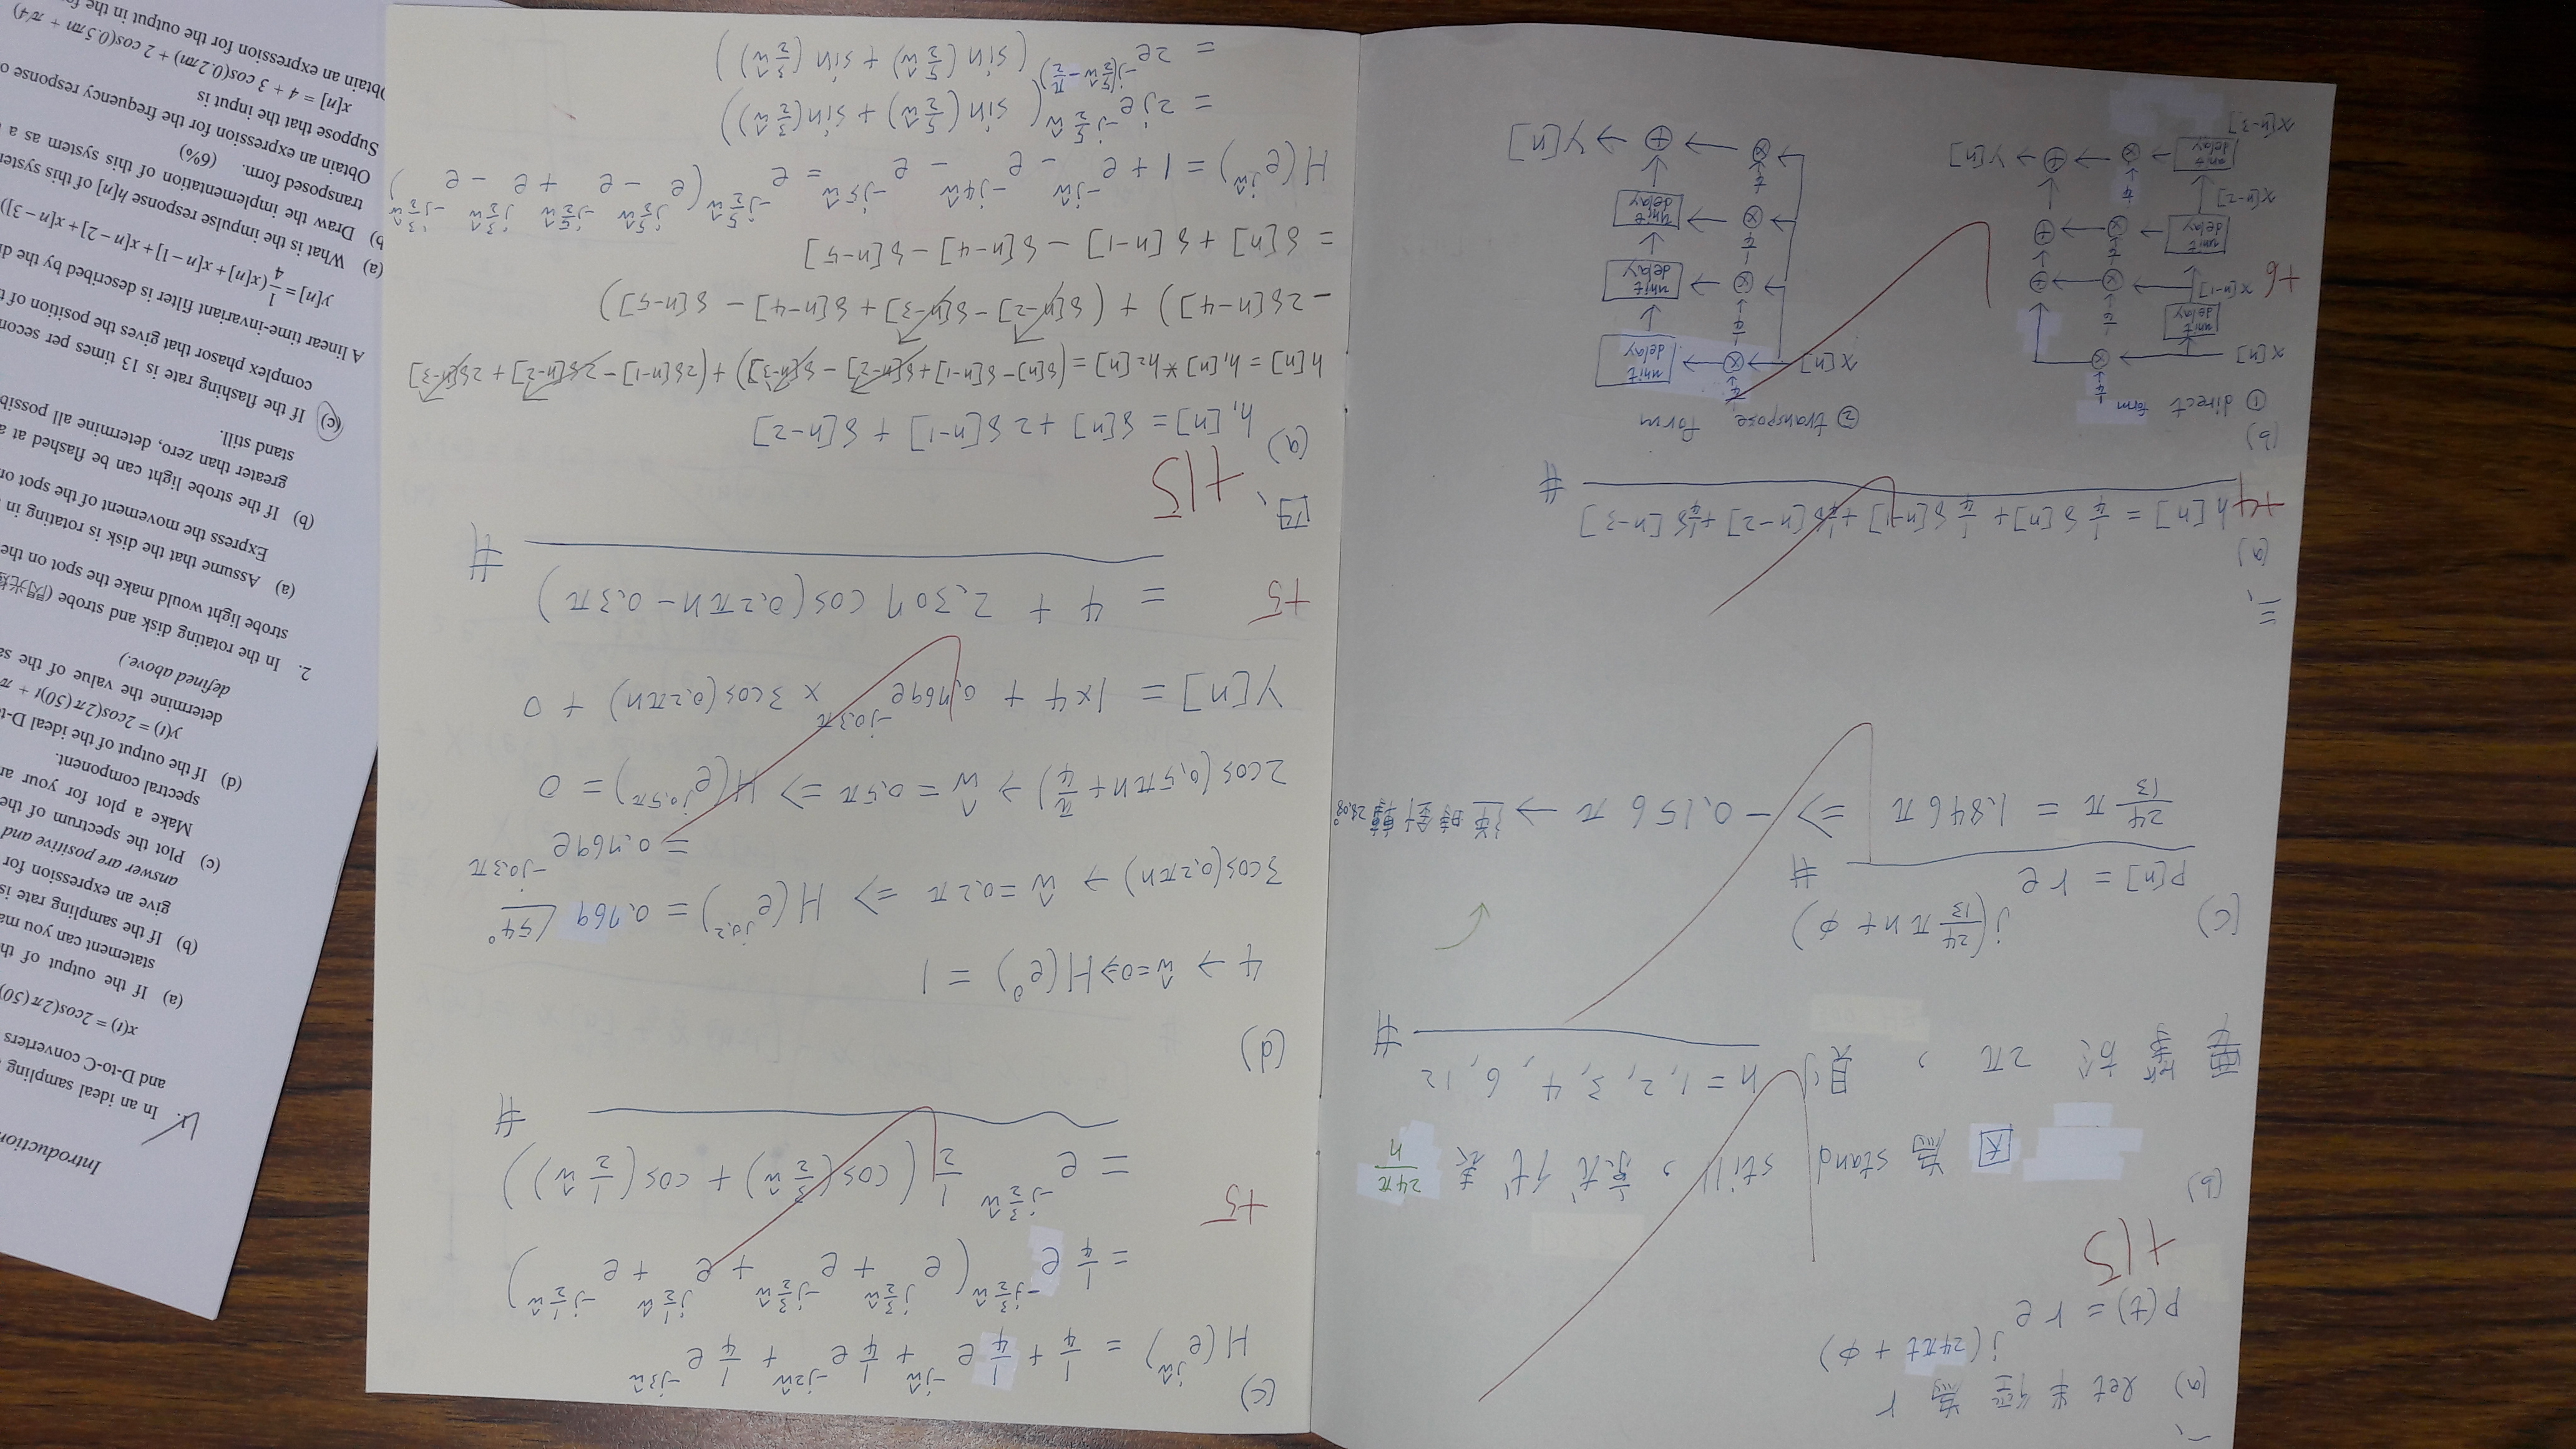 一、
(a) let 半徑為 r
P(t) = r e^{j(24πt + φ)}
+15
(b) 因為 stand still,京尤代表 24π/n
要等於 2π , 則 n = 1, 2, 3, 4, 6, 12 #
(c) P[n] = r e^{j(24/13 πn + φ)} #
24/13 π = 1.846 π => -0.156 π → 逆時針轉 28.08°
三、
(a)
+4 h[n] = 1/4 δ[n] + 1/4 δ[n-1] + 1/4 δ[n-2] + 1/4 δ[n-3] #
(b)
① direct form
1/4
x[n]
unit delay
1/4
+6 x[n-1]
1/4
unit delay
x[n-2]
1/4
unit delay
Y[n]
x[n-3]
② transpose form
1/4
x[n]
unit delay
1/4
unit delay
1/4
unit delay
1/4
Y[n]
(c)
H(e^{jŵ}) = 1/4 + 1/4 e^{-jŵ} + 1/4 e^{-j2ŵ} + 1/4 e^{-j3ŵ}
= 1/4 e^{-j3/2ŵ} ( e^{j3/2ŵ} + e^{-j3/2ŵ} + e^{j1/2ŵ} + e^{-j1/2ŵ} )
+5
= e^{-j3/2ŵ} 1/2 ( cos(3/2 ŵ) + cos(1/2 ŵ) ) #
(d)
4 → ŵ=0 => H(e^0) = 1
3cos(0.2πn) → ŵ = 0.2π => H(e^{j0.2}) = 0.769 ∠54°
= 0.769e^{-j0.3π}
2cos(0.5πn + π/4) → ŵ = 0.5π => H(e^{j0.5π}) = 0
Y[n] = 1×4 + 0.769e^{-j0.3π} × 3cos(0.2πn) + 0
+5 = 4 + 2.307 cos(0.2πn - 0.3π) #
四、 +15
(a) h₁[n] = δ[n] + 2δ[n-1] + δ[n-2]
h[n] = h₁[n] * h₂[n] = (δ[n] - δ[n-1] + δ[n-2] - δ[n-3]) + (2δ[n-1] - 2δ[n-2] + 2δ[n-3]
- 2δ[n-4]) + (δ[n-2] - δ[n-3] + δ[n-4] - δ[n-5])
= δ[n] + δ[n-1] - δ[n-4] - δ[n-5]
H(e^{jŵ}) = 1 + e^{-jŵ} - e^{-j4ŵ} - e^{-j5ŵ} = e^{-j5/2ŵ} ( e^{j5/2ŵ} - e^{-j5/2ŵ} + e^{j3/2ŵ} - e^{-j3/2ŵ} )
= 2j e^{-j5/2ŵ} ( sin(5/2ŵ) + sin(3/2ŵ) )
= 2e^{-j(5/2ŵ - π/2)} ( sin(5/2ŵ) + sin(3/2ŵ) )
Introduction
1. In an ideal sampling
and D-to-C converters
x(t) = 2cos(2π(50)
(a) If the output of th
statement can you ma
(b) If the sampling rate is
give an expression for
answer are positive and
(c) Plot the spectrum of the
Make a plot for your an
spectral component.
(d) If the output of the ideal D-t
y(t) = 2cos(2π(50)t + π
determine the value of the sa
defined above.)
2. In the rotating disk and strobe (閃光燈
strobe light would make the spot on the
(a) Assume that the disk is rotating in
Express the movement of the spot on
(b) If the strobe light can be flashed at a
greater than zero, determine all possib
stand still.
(c) If the flashing rate is 13 times per secon
complex phasor that gives the position of t
A linear time-invariant filter is described by the di
y[n] = 1/4 (x[n] + x[n-1] + x[n-2] + x[n-3])
(a) What is the impulse response h[n] of this system
b) Draw the implementation of this system as a
transposed form. (6%)
Obtain an expression for the frequency response o
Suppose that the input is
x[n] = 4 + 3 cos(0.2πn) + 2 cos(0.5πn + π/4)
Obtain an expression for the output in the fo